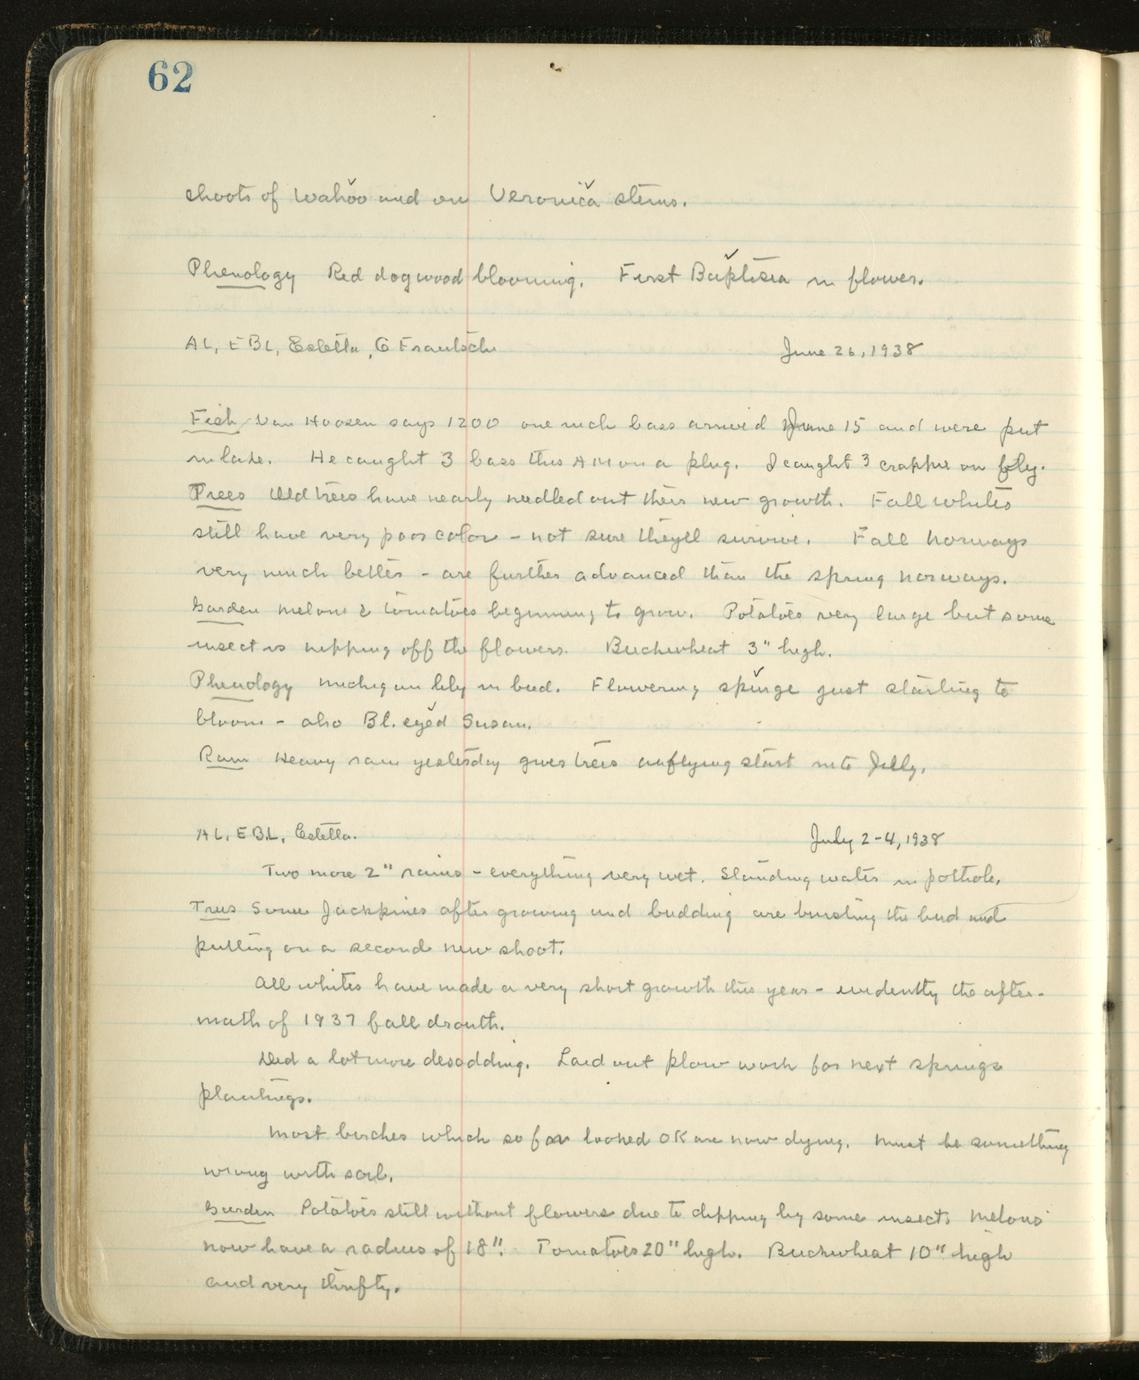 62
shoots of Wahoo and on Veronica stems.
Phenology Red dogwood blooming. First Baptisia in flower.
AL, EBL, Estella, G Frautschi
June 26, 1938
Fish Van Hoosen says 1200 one inch bass arrived June 15 and were put
in lake. He caught 3 bass this AM on a plug. I caught 3 crappie on fly.
Trees Old trees have nearly needled out their new growth. Fall whites
still have very poor color - not sure theyll survive. Fall Norways
very much better - are further advanced than the spring norways.
Garden Melons & tomatoes beginning to grow. Potatoes very large but some
insect is nipping off the flowers. Buckwheat 3" high.
Phenology Michigan lily in bud. Flowering spurge just starting to
bloom - also Bl. eyed Susan.
Rain Heavy rain yesterday gives trees a flying start into July.
AL, EBL, Estella.
July 2-4, 1938
Two more 2" rains - everything very wet. Standing water in pothole.
Trees Some Jackpines after growing and budding are bursting the bud and
putting on a second new shoot.
All whites have made a very short growth this year - evidently the after-
math of 1937 fall drouth.
Did a lot more desodding. Laid out plow work for next springs
plantings.
Most birches which so far looked OK are now dying. Must be something
wrong with soil.
Garden Potatoes still without flowers due to clipping by some insect. Melons
now have a radius of 18". Tomatoes 20" high. Buckwheat 10" high
and very thrifty.